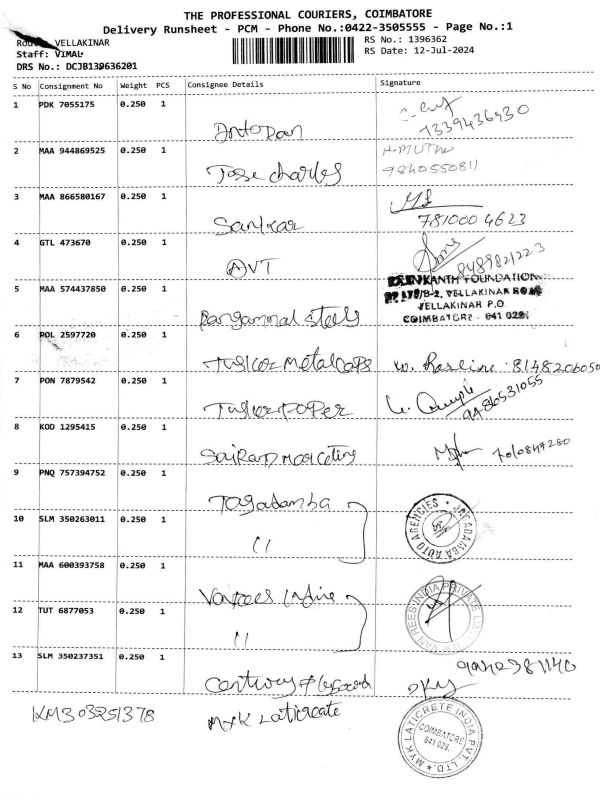 THE PROFESSIONAL COURIERS, COIMBATORE
Delivery Runsheet - PCM - Phone No.:0422-3505555 - Page No.:1
Route: VELLAKINAR
RS No.: 1396362
Staff: VIMAL
RS Date: 12-Jul-2024
DRS No.: DCJB139636201
S No Consignment No Weight PCS Consignee Details Signature
1 PDK 7055175 0.250 1
Antopan 7339436930
2 MAA 944869525 0.250 1 H-MUTHU
Jose charles 9840550811
3 MAA 866580167 0.250 1
Sankar 7810004623
4 GTL 473670 0.250 1
AVT 8489821223
RAJNIKANTH FOUNDATION
5 MAA 574437850 0.250 1 VELLAKINAR ROAD
VELLAKINAR P.O
Rangammal steels COIMBATORE - 641 029.
6 POL 2597720 0.250 1
Tuskor Metal Caps 8148206050
7 PON 7879542 0.250 1
Tusker Paper 9486531055
8 KOD 1295415 0.250 1
Sairam marceting
9 PNQ 757394752 0.250 1
Jagadamba
10 SLM 350263011 0.250 1
11 JAGADAMBA AUTO AGENCIES
11 MAA 600393758 0.250 1
Vanrees Indire
12 TUT 6877053 0.250 1
11 VAN REES INDIA PRIVATE
13 SLM 350237351 0.250 1
Century Plywood
KM303251378 MYK Laticreate
MYK LATICRETE INDIA PVT. LTD.
COIMBATORE
641 029.